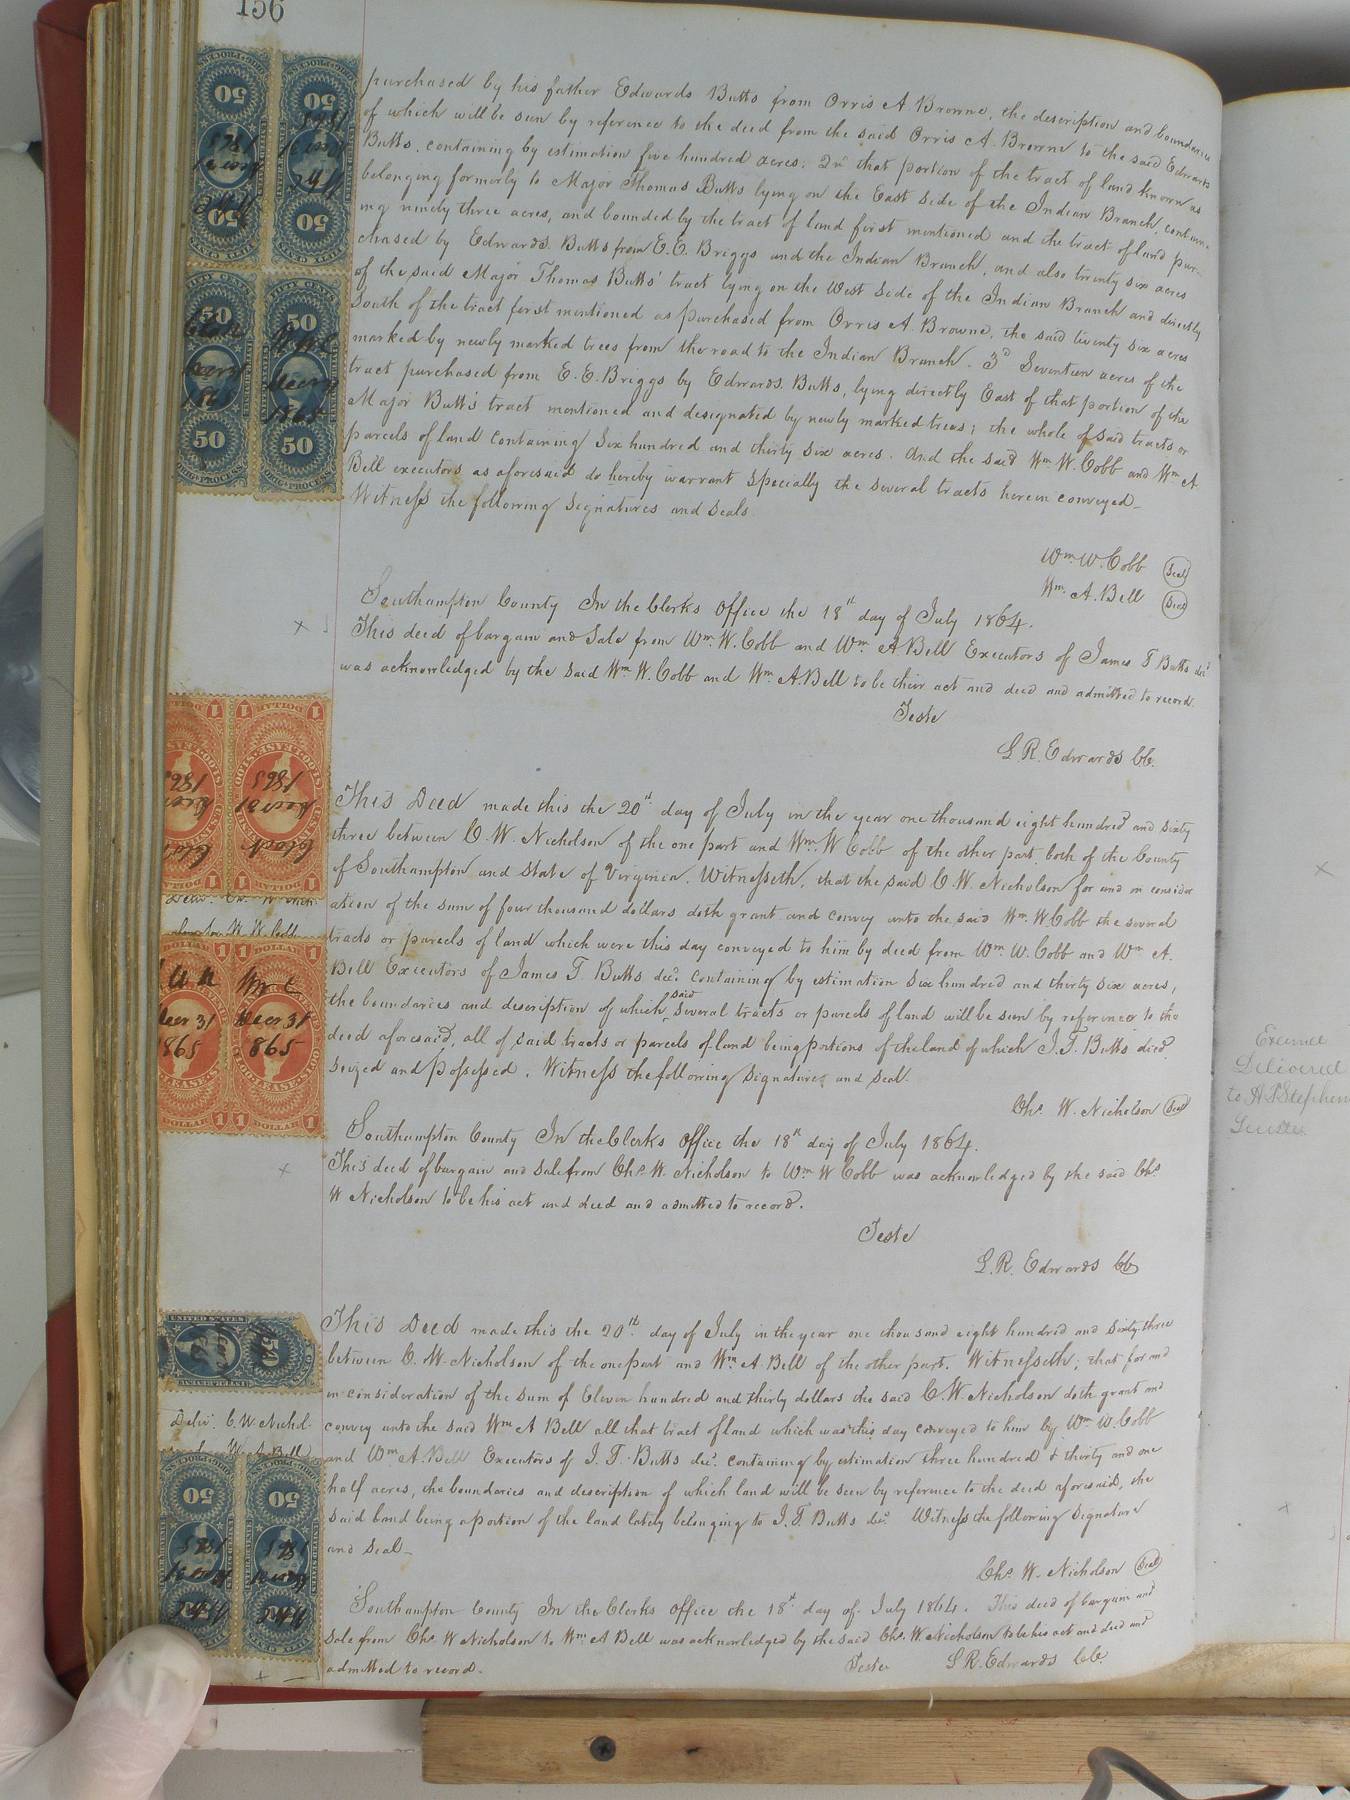 156
purchased by his father Edwards Butts from Orris A Browne, the description and boundaries
of which will be seen by reference to the deed from the said Orris A. Browne to the said Edwards
Butts, containing by estimation five hundred acres; 2nd that portion of the tract of land known as
belonging formerly to Major Thomas Butts lying on the East side of the Indian Branch, contain-
ing ninety three acres, and bounded by the tract of land first mentioned and the tract of land pur-
chased by Edwards Butts from E. E. Briggs and the Indian Branch, and also twenty six acres
of the said Major Thomas Butts' tract lying on the West side of the Indian Branch and directly
South of the tract first mentioned as purchased from Orris A. Browne, the said twenty six acres
marked by newly marked trees from the road to the Indian Branch. 3d Seventeen acres of the
tract purchased from E. E. Briggs by Edwards Butts, lying directly East of that portion of the
Major Butts tract mentioned and designated by newly marked trees; the whole of said tracts or
parcels of land containing Six hundred and thirty six acres. And the said Wm W. Cobb and Wm A.
Bell executors as aforesaid do hereby warrant specially the several tracts herein conveyed_
Witness the following signatures and seals
Wm W. Cobb Seal
Wm A. Bell Seal
Southampton County In the Clerks Office the 18th day of July 1864.
This deed of bargain and Sale from Wm. W. Cobb and Wm A Bell Executors of James T Butts decd
was acknowledged by the said Wm W. Cobb and Wm A. Bell to be their act and deed and admitted to record.
Teste
L R. Edwards CC.
This Deed made this the 20th day of July in the year one thousand eight hundred and sixty
three between C. W. Nicholson of the one part and Wm. W Cobb of the other part both of the County
of Southampton and State of Virginia. Witnesseth, that the said C. W. Nicholson for and in consider
ation of the sum of four thousand dollars doth grant and convey unto the said Wm. W. Cobb the several
tracts or parcels of land which were this day conveyed to him by deed from Wm W. Cobb and Wm A.
Bell Executors of James T. Butts decd containing by estimation Six hundred and thirty six acres,
the boundaries and description of which said several tracts or parcels of land will be seen by reference to the
deed aforesaid, all of said tracts or parcels of land being portions of the land of which J. T. Butts died
seized and possessed. Witness the following signature and seal.
Chs. W. Nicholson Seal
Southampton County In the Clerks Office the 18th day of July 1864.
This deed of bargain and sale from Chs. W. Nicholson to Wm W Cobb was acknowledged by the said Chs
W Nicholson to be his act and deed and admitted to record.
Teste
L. R. Edwards CC
This Deed made this the 20th day of July in the year one thousand eight hundred and sixty three
between C. W. Nicholson of the one part and Wm A. Bell of the other part. Witnesseth; that for and
in consideration of the sum of Eleven hundred and thirty dollars the said C. W. Nicholson doth grant and
convey unto the said Wm A Bell all that tract of land which was this day conveyed to him by Wm W. Cobb
and Wm A. Bell Executors of J. T. Butts decd. containing by estimation three hundred & thirty and one
half acres, the boundaries and description of which land will be seen by reference to the deed aforesaid, the
said land being a portion of the land lately belonging to J. T. Butts decd. Witness the following signature
and seal_
Chs. W. Nicholson Seal
Southampton County In the Clerks Office the 18th day of July 1864. This deed of bargain and
sale from Chs. W Nicholson to Wm A Bell was acknowledged by the said Chs. W Nicholson to be his act and deed and
admitted to record. Teste L R. Edwards CC.
50
50
50
50
50
50
50
50
Decr 31
1865
1
1
DOLLAR
W W Cobb
DOLLAR 1
1 DOLLAR
Decr 31
Decr 31
1865
1865
DOLLAR 1
1 DOLLAR
UNITED STATES
50
Deliv. C. W. Nichol-
W. A. Bell
50
50
Delivered
to